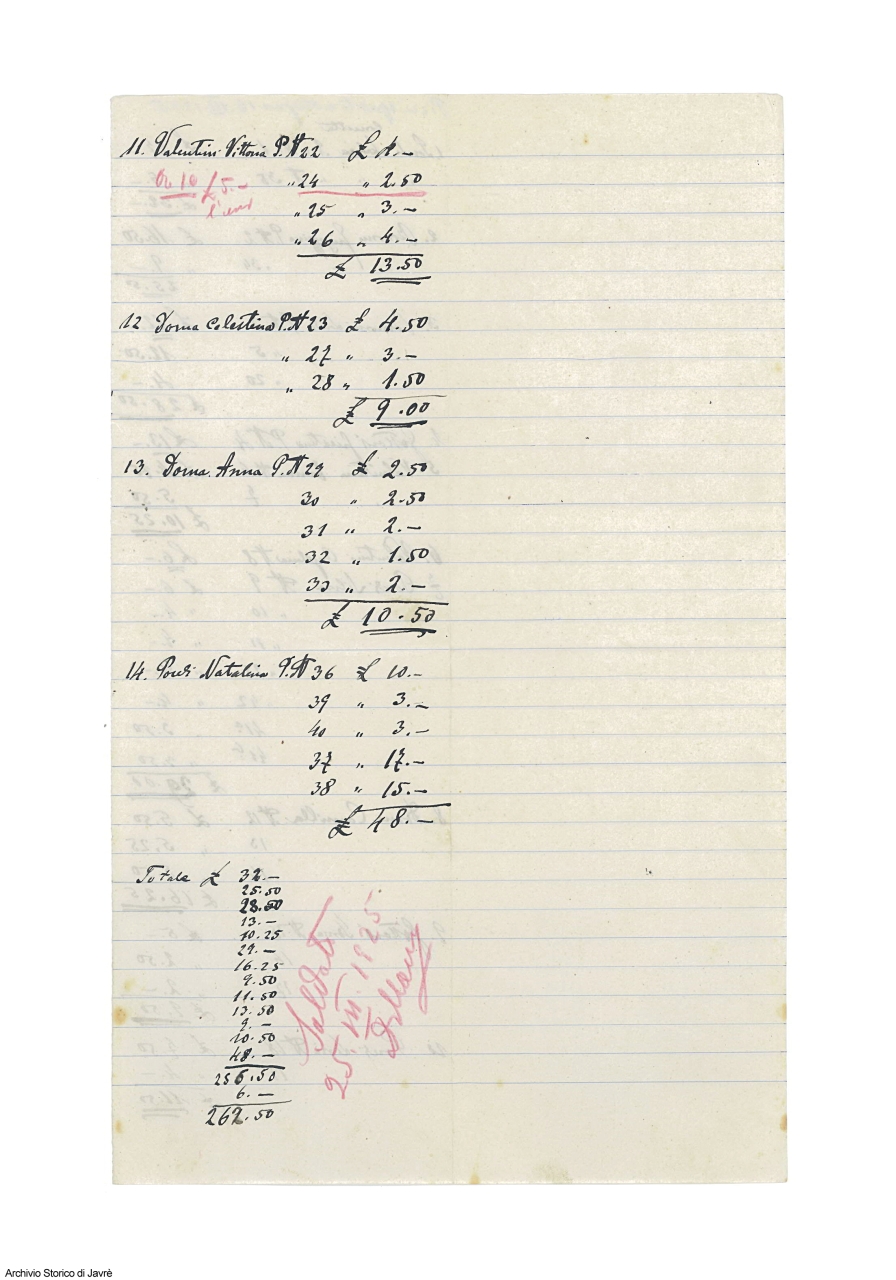 11. Valentini Vittoria P.N 22 £ 4.-
" 24 " 2.50
£ 5.-
" 25 " 3.-
" 26 " 4.-
£ 13.50
12 Dorna Celestina P.N 23 £ 4.50
" 27 " 3.-
" 28 " 1.50
£ 9.00
13. Dorna Anna P.N 29 £ 2.50
30 " 2.50
31 " 2.-
32 " 1.50
33 " 2.-
£ 10.50
14. Natalina P.N 36 £ 10.-
39 " 3.-
40 " 3.-
37 " 17.-
38 " 15.-
£ 48.-
Totale £ 32.-
25.50
28.50
13.-
10.25
29.-
16.25
9.50
11.50
13.50
9.-
10.50
48.-
256.50
6.-
262.50
Saldato
25 III. 1925
Archivio Storico di Javrè